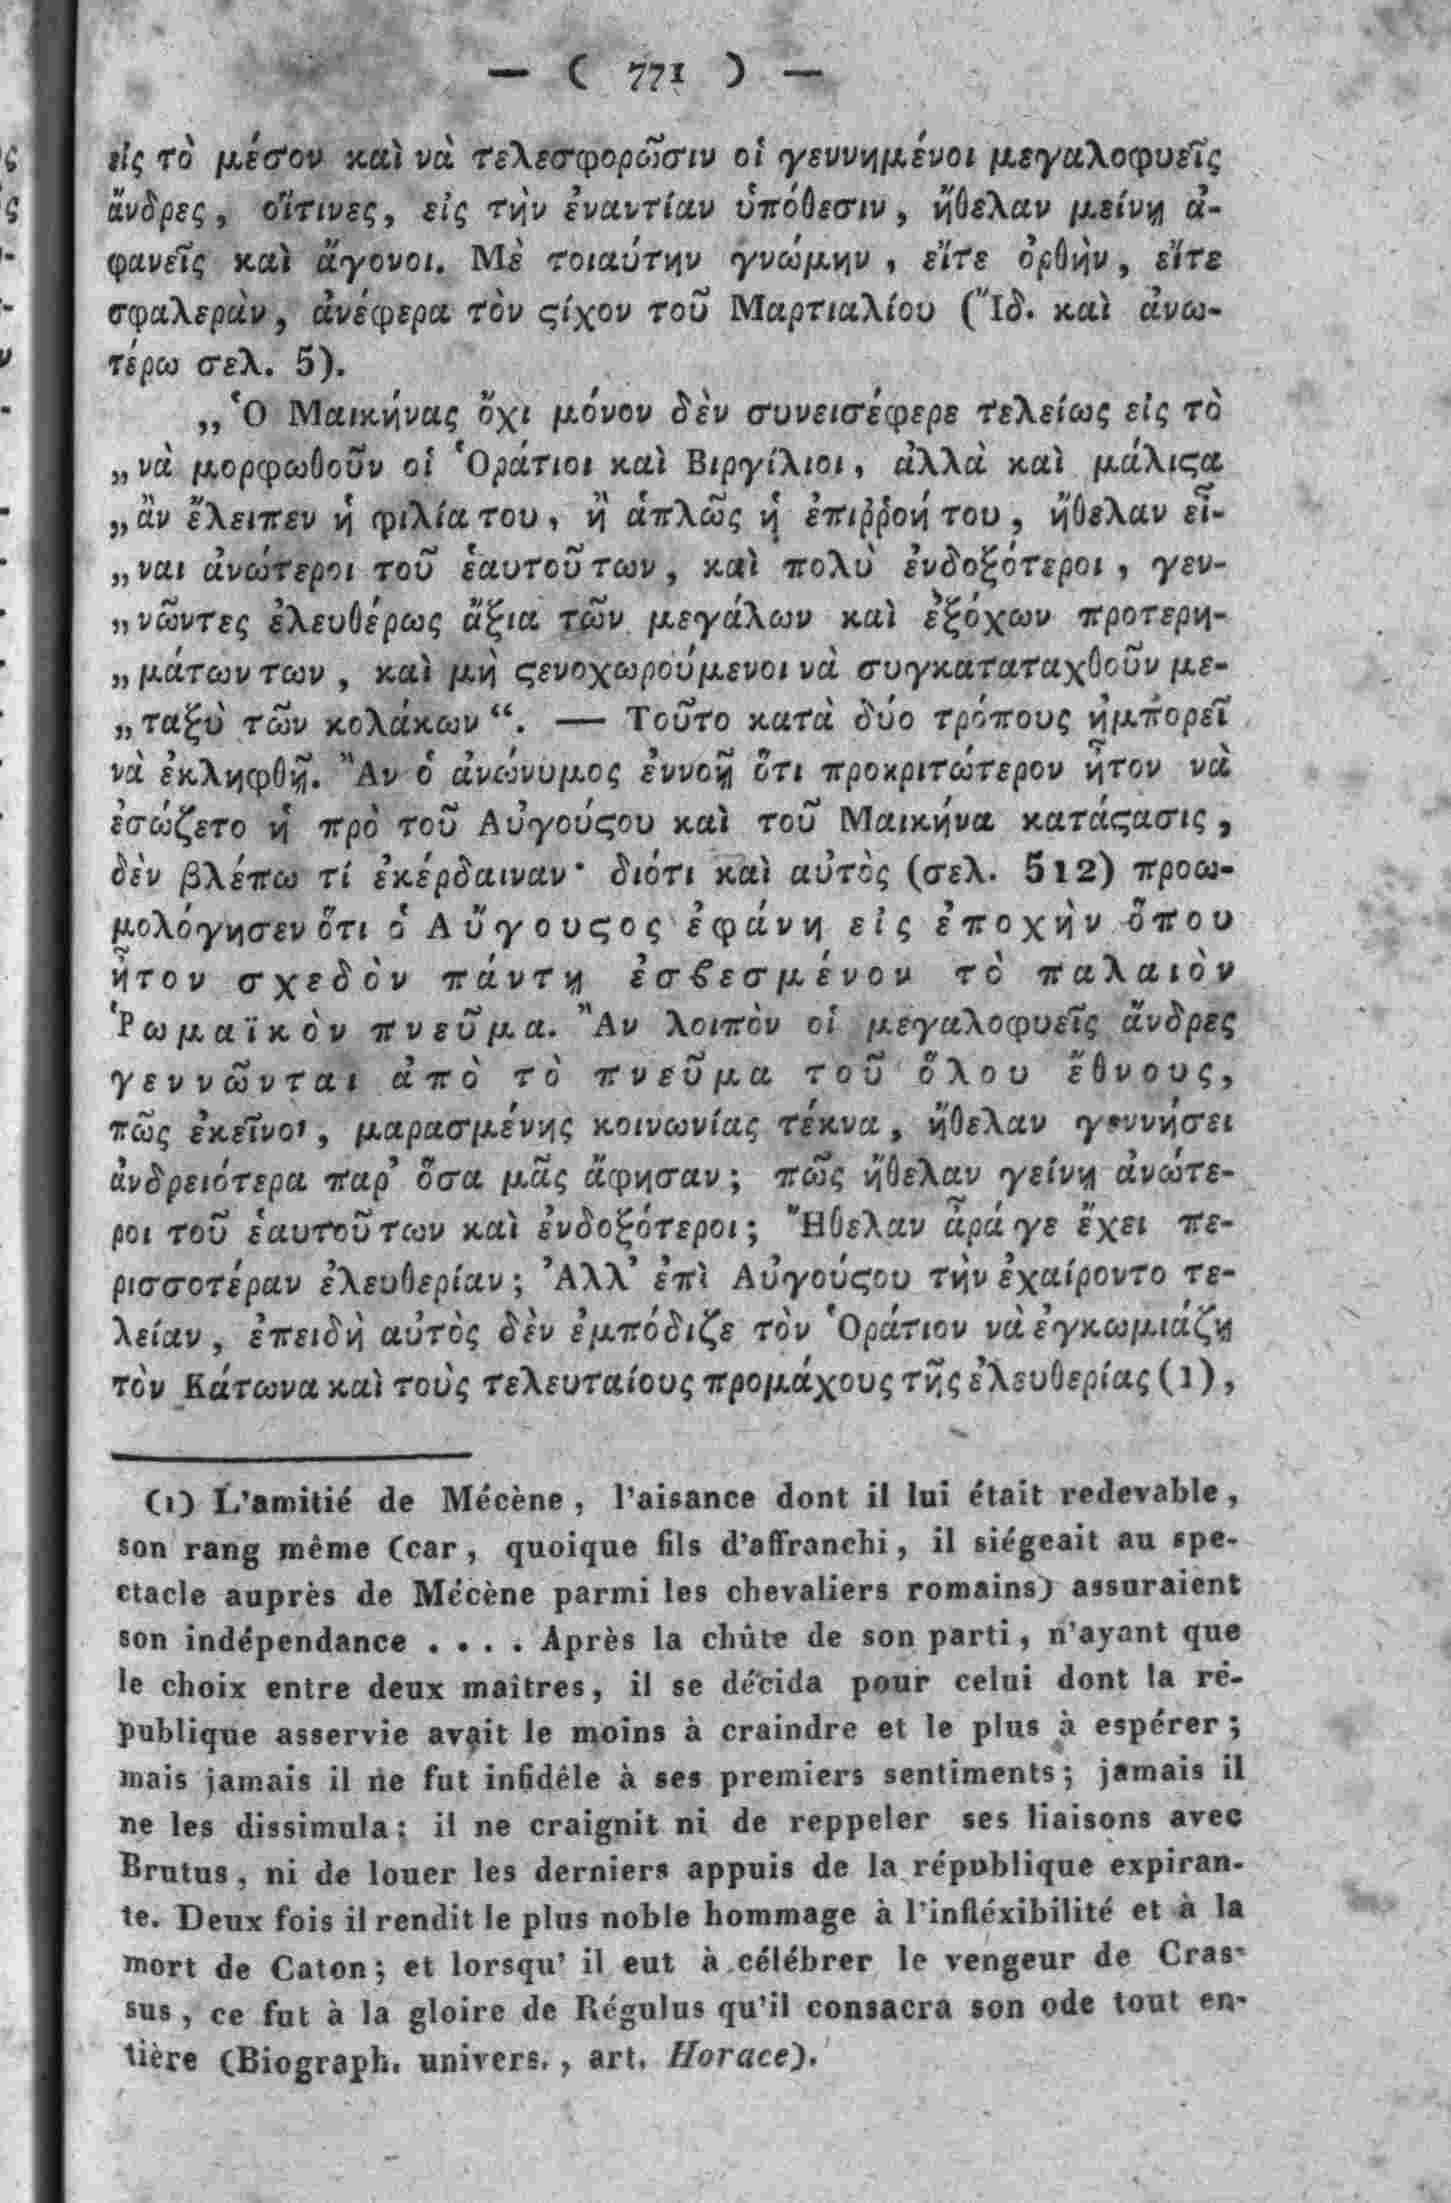 — ( 771 ) —
εἰς τὸ μέσον καὶ νὰ τελεσφορῶσιν οἱ γεννημένοι μεγαλοφυεῖς
ἄνδρες, οἵτινες, εἰς τὴν ἐναντίαν ὑπόθεσιν, ἤθελαν μείνῃ ἀ-
φανεῖς καὶ ἄγονοι. Μὲ τοιαύτην γνώμην, εἴτε ὀρθὴν, εἴτε
σφαλερὰν, ἀνέφερα τὸν ϛίχον τοῦ Μαρτιαλίου (Ἴδ. καὶ ἀνω-
τέρω σελ. 5).
„Ὁ Μαικήνας ὄχι μόνον δὲν συνεισέφερε τελείως εἰς τὸ
„νὰ μορφωθοῦν οἱ Ὁράτιοι καὶ Βιργίλιοι, ἀλλὰ καὶ μάλιϛα
„ἂν ἔλειπεν ἡ φιλία του, ἢ ἁπλῶς ἡ ἐπιῤῥοή του, ἤθελαν εἶ-
„ναι ἀνώτεροι τοῦ ἑαυτοῦ των, καὶ πολὺ ἐνδοξότεροι, γεν-
„νῶντες ἐλευθέρως ἄξια τῶν μεγάλων καὶ ἐξόχων προτερη-
„μάτων των, καὶ μὴ ϛενοχωρούμενοι νὰ συγκαταταχθοῦν με-
„ταξὺ τῶν κολάκων“. — Τοῦτο κατὰ δύο τρόπους ἠμπορεῖ
νὰ ἐκληφθῇ. Ἂν ὁ ἀνώνυμος ἐννοῇ ὅτι προκριτώτερον ἦτον νὰ
ἐσώζετο ἡ πρὸ τοῦ Αὐγούϛου καὶ τοῦ Μαικήνα κατάϛασις,
δὲν βλέπω τί ἐκέρδαιναν· διότι καὶ αὐτὸς (σελ. 512) προω-
μολόγησεν ὅτι ὁ Αὔγουϛος ἐφάνη εἰς ἐποχὴν ὅπου
ἦτον σχεδὸν πάντη ἐσβεσμένον τὸ παλαιὸν
Ῥωμαϊκὸν πνεῦμα. Ἂν λοιπὸν οἱ μεγαλοφυεῖς ἄνδρες
γεννῶνται ἀπὸ τὸ πνεῦμα τοῦ ὅλου ἔθνους,
πῶς ἐκεῖνοι, μαρασμένης κοινωνίας τέκνα, ἤθελαν γεννήσει
ἀνδρειότερα παρ’ ὅσα μᾶς ἄφησαν; πῶς ἤθελαν γείνῃ ἀνώτε-
ροι τοῦ ἑαυτοῦ των καὶ ἐνδοξότεροι; Ἤθελαν ἆρά γε ἔχει πε-
ρισσοτέραν ἐλευθερίαν; Ἀλλ’ ἐπὶ Αὐγούϛου τὴν ἐχαίροντο τε-
λείαν, ἐπειδὴ αὐτὸς δὲν ἐμπόδιζε τὸν Ὁράτιον νὰ ἐγκωμιάζῃ
τὸν Κάτωνα καὶ τοὺς τελευταίους προμάχους τῆς ἐλευθερίας (1),
(1) L'amitié de Mécène, l'aisance dont il lui était redevable,
son rang même (car, quoique fils d'affranchi, il siégeait au spe-
ctacle auprès de Mécène parmi les chevaliers romains) assuraient
son indépendance . . . . Après la chûte de son parti, n'ayant que
le choix entre deux maîtres, il se décida pour celui dont la ré-
publique asservie avait le moins à craindre et le plus à espérer;
mais jamais il ne fut infidêle à ses premiers sentiments; jamais il
ne les dissimula: il ne craignit ni de reppeler ses liaisons avec
Brutus, ni de louer les derniers appuis de la république expiran-
te. Deux fois il rendit le plus noble hommage à l'infléxibilité et à la
mort de Caton; et lorsqu' il eut à célébrer le vengeur de Cras-
sus, ce fut à la gloire de Régulus qu'il consacra son ode tout en-
tière (Biograph. univers., art. Horace).